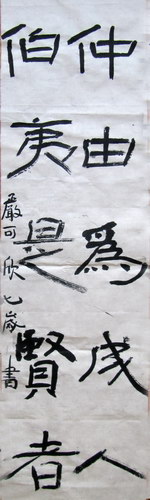 仲由為成人
伯夷是賢者
嚴可欣七歲書